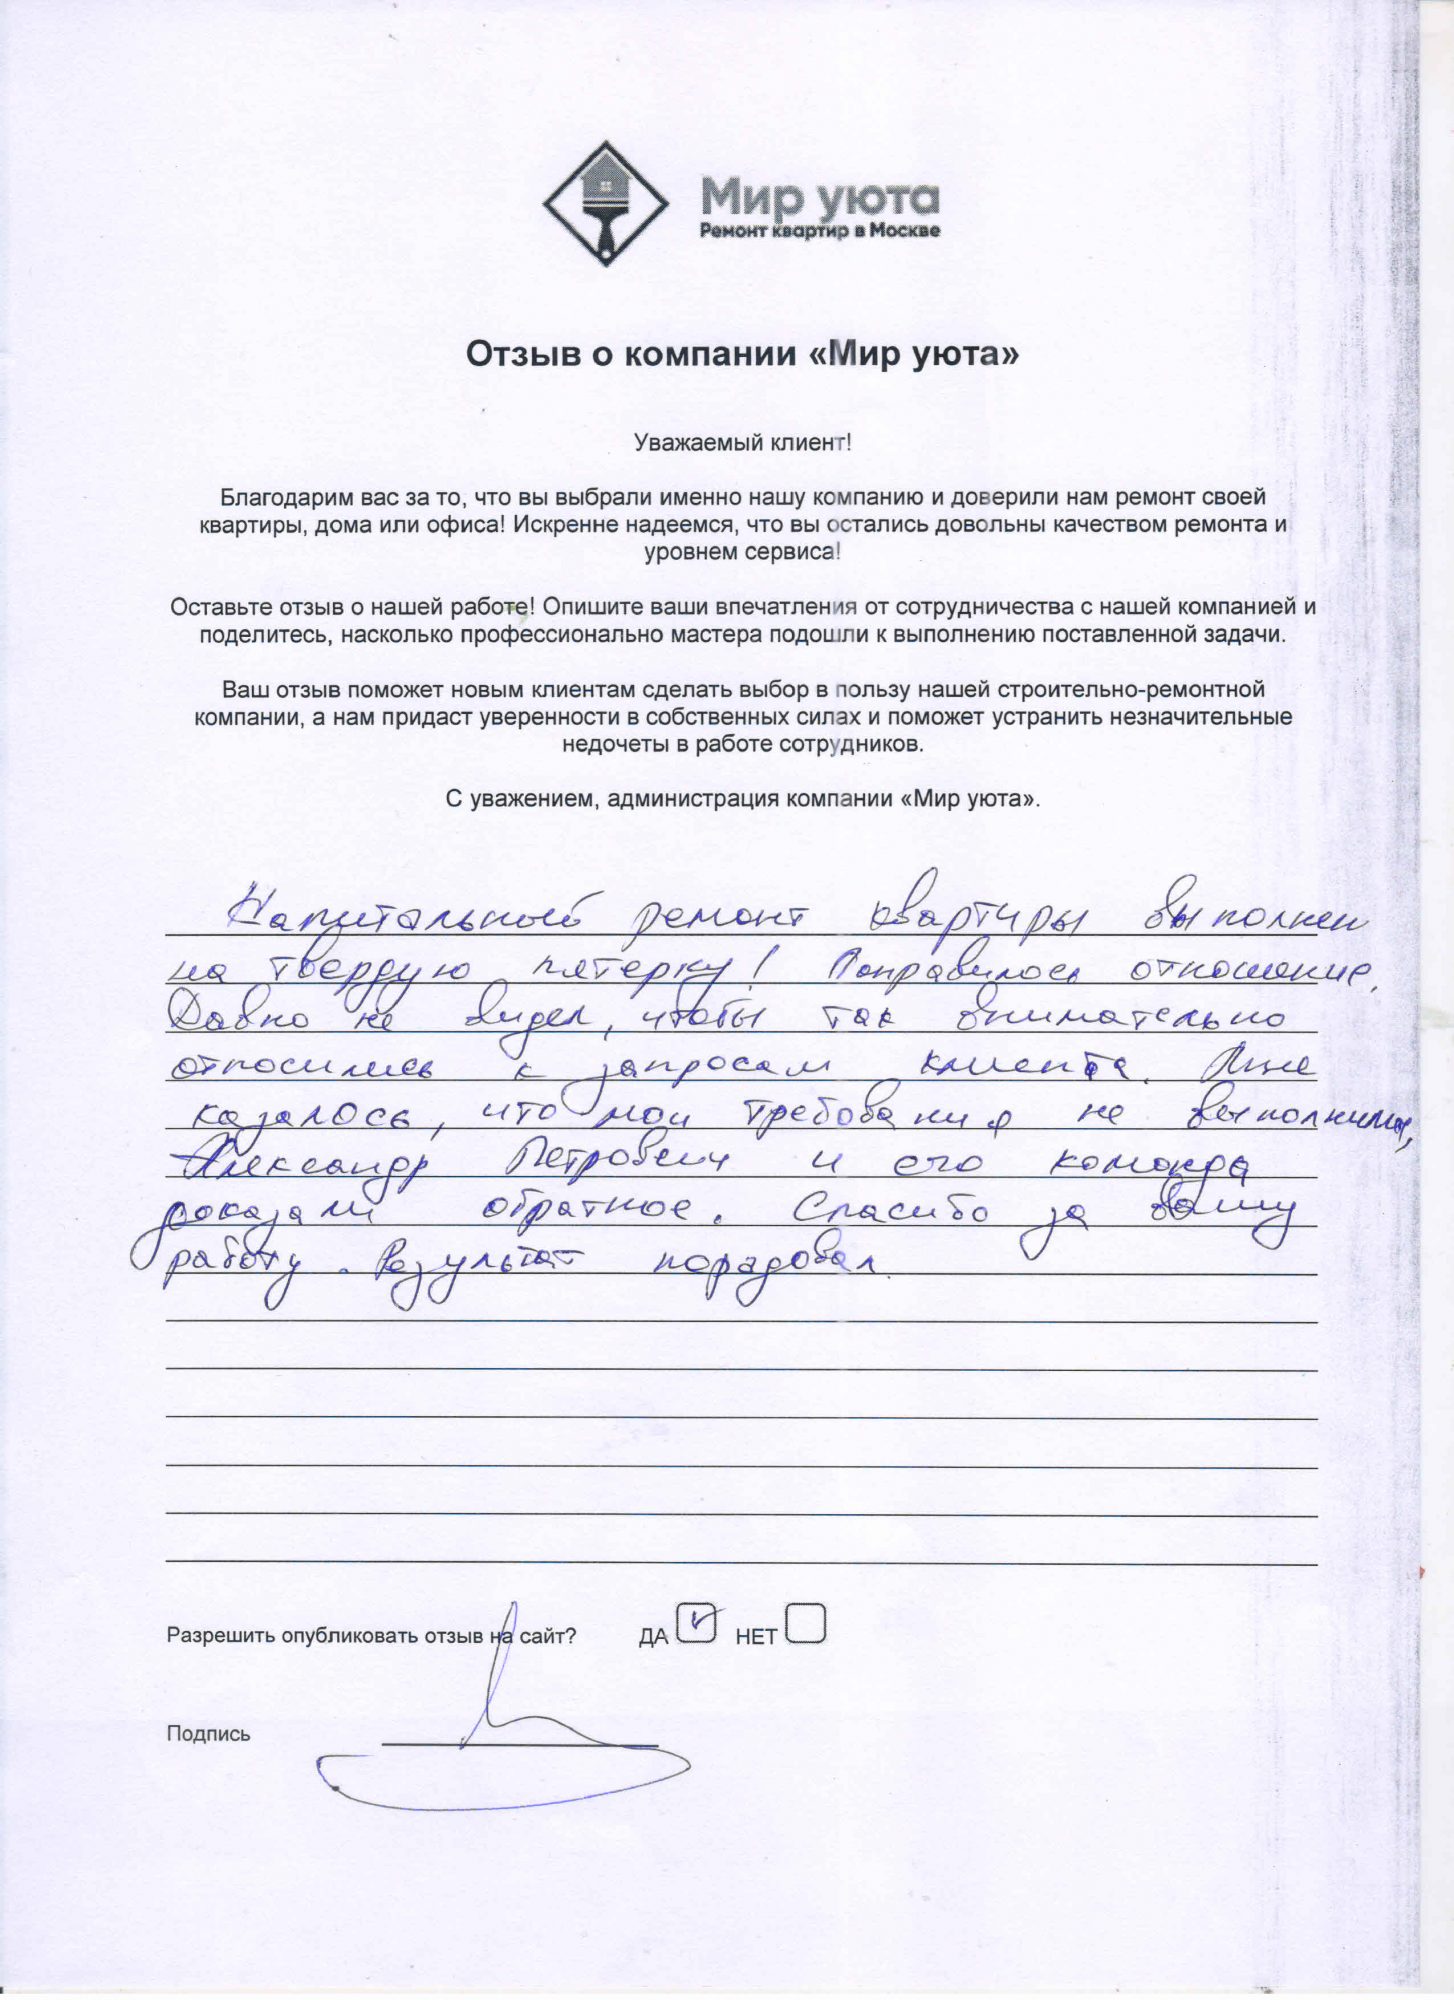 Мир уюта
Ремонт квартир в Москве
Отзыв о компании «Мир уюта»
Уважаемый клиент!
Благодарим вас за то, что вы выбрали именно нашу компанию и доверили нам ремонт своей
квартиры, дома или офиса! Искренне надеемся, что вы остались довольны качеством ремонта и
уровнем сервиса!
Оставьте отзыв о нашей работе! Опишите ваши впечатления от сотрудничества с нашей компанией и
поделитесь, насколько профессионально мастера подошли к выполнению поставленной задачи.
Ваш отзыв поможет новым клиентам сделать выбор в пользу нашей строительно-ремонтной
компании, а нам придаст уверенности в собственных силах и поможет устранить незначительные
недочеты в работе сотрудников.
С уважением, администрация компании «Мир уюта».
Капитальный ремонт квартиры выполнен
на твердую пятерку! Понравилось отношение.
Давно не видел, чтобы так внимательно
относились к запросам клиента. Мне
казалось, что мои требования не выполнимы,
Александр Петрович и его команда
доказали обратное. Спасибо за вашу
работу. Результат порадовал.
Разрешить опубликовать отзыв на сайт? ДА НЕТ
Подпись